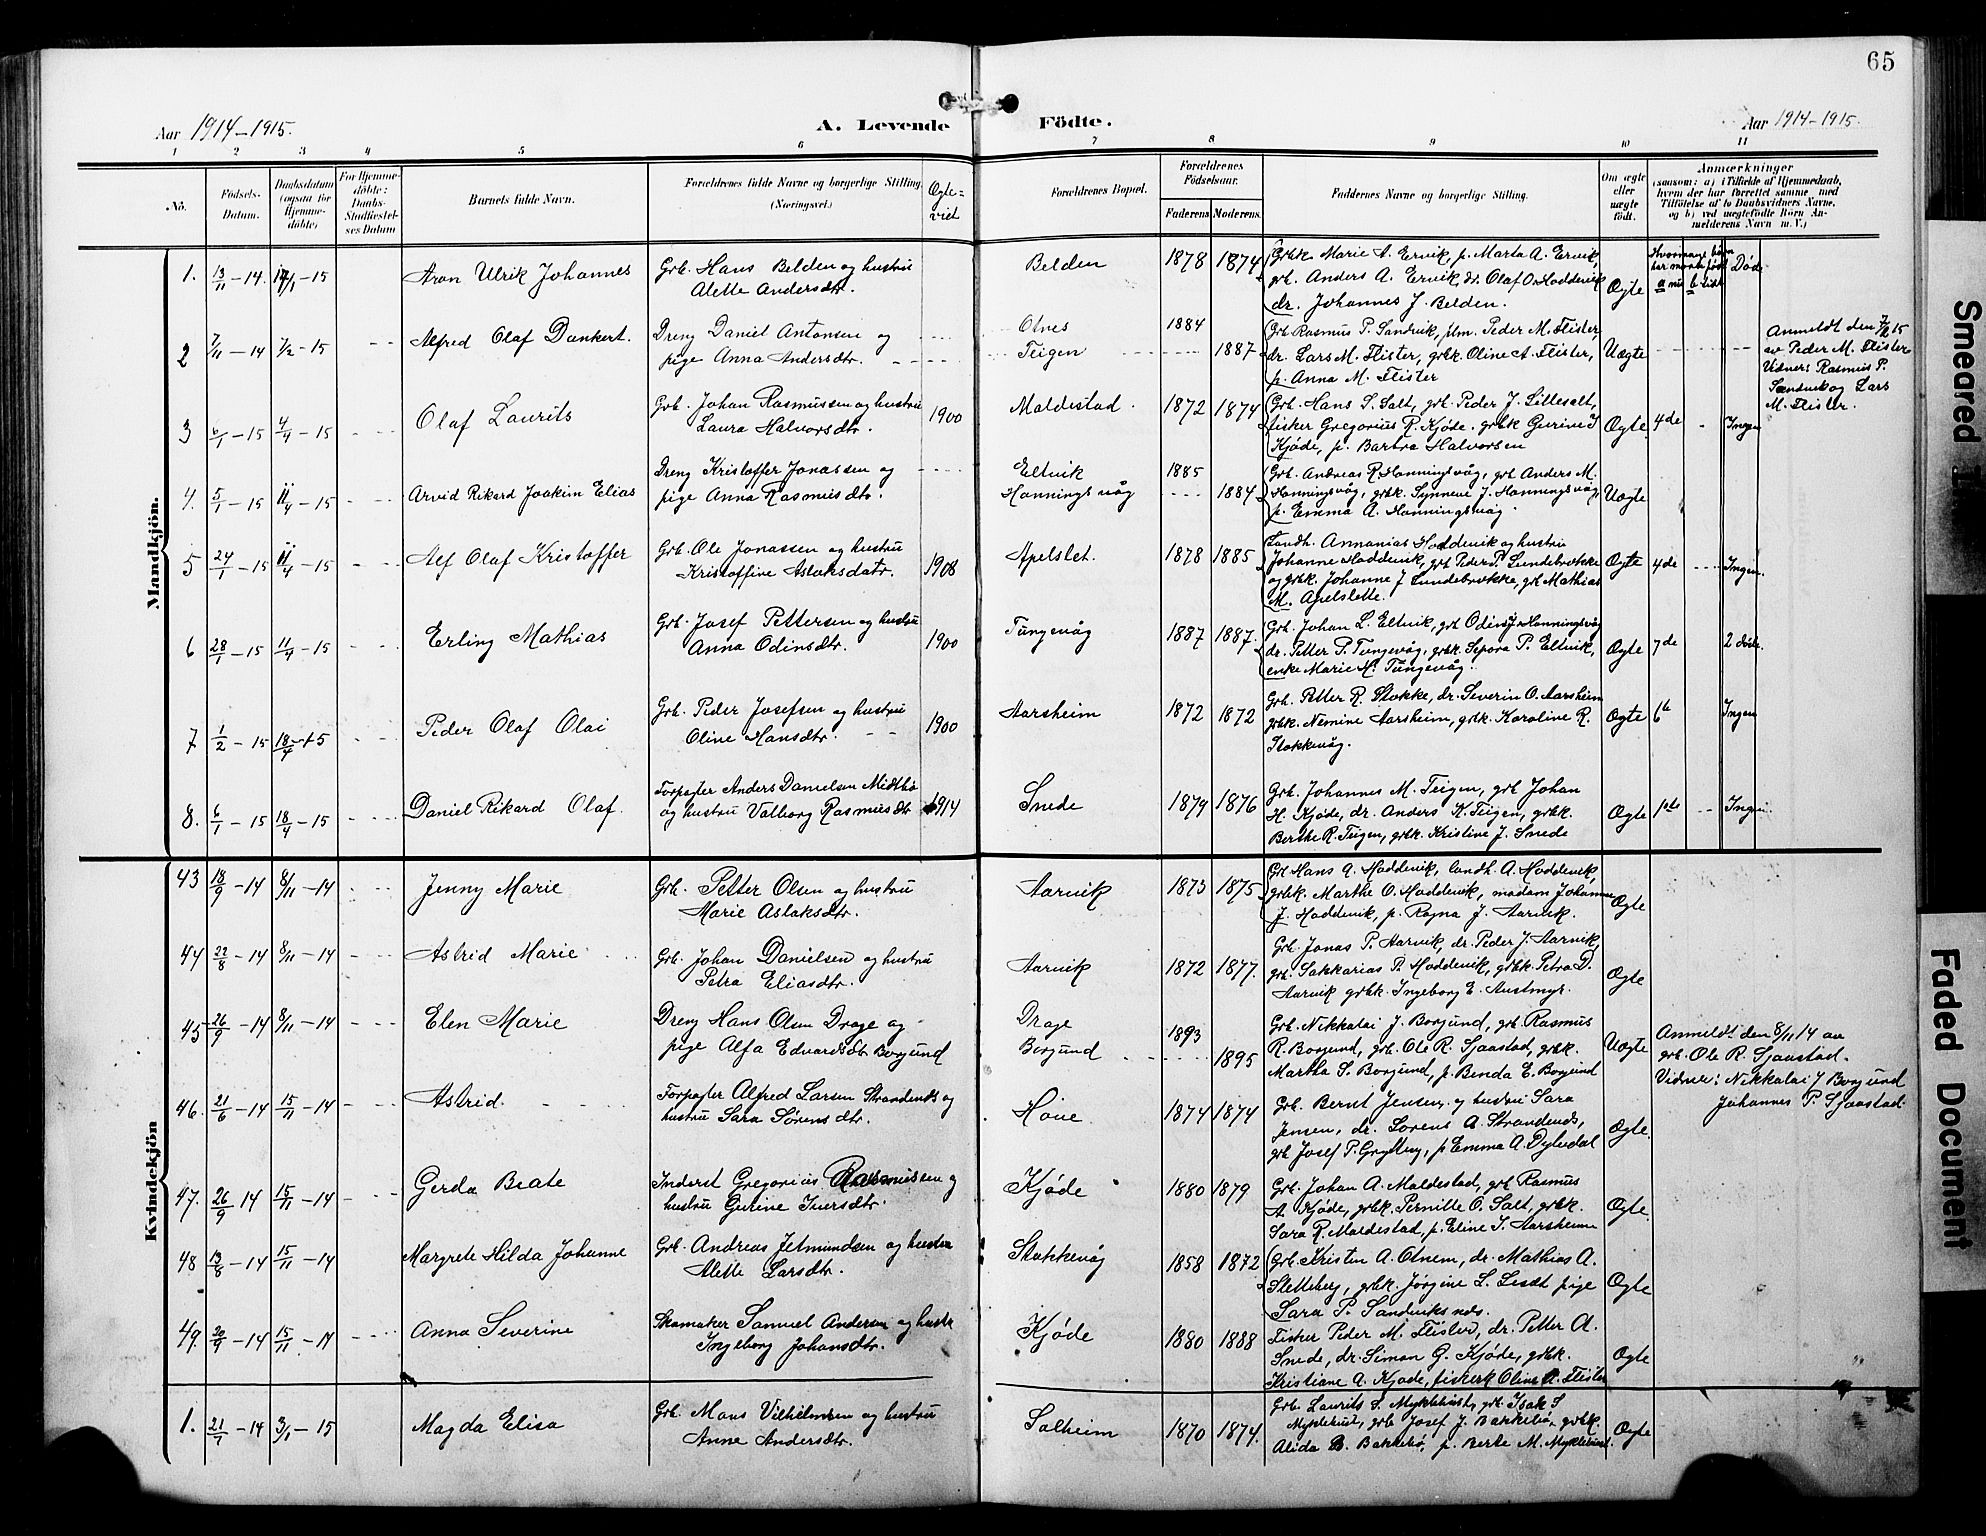 65
Aar 1914–1915.
A. Levende
Födte.
Aar 1914–1915.
1 2 3 4 5 6 7 8 9 10 11
No.
Födsels-
Datum.
Daabsdatum
(ogsaa for
Hjemme-
döbte)
For Hjemme-
döbte:
Daabs-
Stadfæstel-
ses Datum
Barnets fulde Navn.
Forældrenes fulde Navne og borgerlige Stilling.
(Næringsvei.)
Ægte-
viet
Forældrenes Bopæl.
Forældrenes
Födselsaar.
Faderens
Moderens.
Faddernes Navne og borgerlige Stilling.
Om ægte
eller
uægte
födt.
Anmærkninger
(saasom: a) i Tilfælde af Hjemmedaab,
hvem der har forrettet samme med
Tilföielse af to Daabsvidners Navne,
og b) ved uægtefödte Börn An-
melderens Navn m. V.)
Mandkjön.
1. 13/11 – 14. 17/1 – 15
Aron Ulrik Johannes
Grb. Hans Belden og hustru
Alette Andersdtr.
Belden
1878 1874
Grbk Marie A. Ervik, p. Marta A. Ervik,
grb. Anders A. Ervik, dr. Olaf O. Hoddevik
dr. Johannes J. Belden.
Ægte
Død
2 7/11 – 14 7/2 – 15
Alfred Olaf Dankert.
Dreng Daniel Antonsen og
pige Anna Andersdtr.
Otnes
Teigen
1884
1887
Grb Rasmus P. Sandvik, Peder M. Flister,
dr. Lars M. Flister, grbk. Oline A. Flister,
p. Anna M. Flister
Uægte
Anmeldt den 7/2 15
av Peder M. Flister
Vidner: Rasmus P.
Sandvik og Lars
M. Flister.
3 6/1 – 15 4/4 – 15
Olaf Laurits
Grb. Johan Rasmussen og hustru
Laura Halvorsdtr.
1900
Maldestad.
1872 1874
Grb. Hans S. Salt, grb. Peder J. Lillesalt,
fisker Gregorius R. Kjøde. grbk Gurine I
Kjøde, p. Bartra Halvorsen
Ægte. 4de Ingen
4. 5/1 – 15 11/4 – 15
Arvid Rikard Joakim Elias
Dreng Kristoffer Jonassen og
pige Anna Rasmusdtr.
Eltvik
Honningsvåg
1885
1884
Grb. Andreas R. Honningsvåg, grb Anders M.
Honningsvåg, grbk. Synneve J. Honningsvåg,
p. Emma A. Honningsvåg.
Uægte
5 24/1 – 15 11/4 – 15
Alf Olaf Kristoffer
Grb. Ole Jonassen og hustru
Kristoffine Aslaksdatr.
1908
Apelslet.
1878 1885
Landh. Annanias Hoddevik og hustru
Johanne Hoddevik, grb Peder P. Lundebrekke
og grbk. Johanne J Lundebrekke, grb Mathias
M. Apelslette.
Ægte 4de Ingen.
6 28/1 – 15 11/4 – 15
Erling Mathias
Grb. Josef Pettersen og hustru
Anna Odinsdtr.
1900
Tungevåg
1887 1887.
Grb. Johan L. Eltvik, grb Odin J. Honningsvåg
dr. Petter P. Tungevåg, grbk. Sepora P. Eltvik,
enke Marie M. Tungevåg.
Ægte 7de 2 døde.
7 1/2 – 15 18/4 – 15
Peder Olaf Olai
Grb. Peder Josefsen og hustru
Oline Hansdtr.
1900
Aarsheim
1872 1872
Grb. Petter R. Stokke, dr. Severin O. Aarsheim
grbk. Nemine Aarsheim, grbk. Karoline R.
Stokkevåg.
Ægte 6te Ingen
8. 6/1 – 15 18/4 – 15
Daniel Rikard Olaf.
Forpagter Anders Danielsen Midtbø
og hustru Valborg Rasmusdtr
1914
Snede
1879 1876
Grb. Johannes M. Teigen, grb Johan
H. Kjøde, dr. Anders K. Teigen, grbk.
Berthe R. Teigen, grbk. Kristine J. Snede
Ægte 1ste Ingen.
Kvindekjön
43 18/9 – 14 8/11 – 14
Jenny Marie
Grb. Petter Olsen og hustru
Marie Aslaksdtr.
Aarvik
1873 1875
Grb Hans A. Hoddevik, landh. A. Hoddevik,
grbk. Marthe O. Hoddevik, madam Johanne
J. Hoddevik, p. Ragna J. Aarvik.
Ægte
44 22/8 – 14 8/11 – 14
Astrid Marie
Grb. Johan Danielsen og hustru
Petra Eliasdtr.
Aarvik
1872 1877.
Grb. Jonas P. Aarvik, dr. Peder J. Aarvik,
grb. Sakkarias P. Hoddevik, grbk. Petra D.
Aarvik grbk. Ingeborg E. Austmyr.
Ægte
45 26/9 – 14 8/11 – 14
Elen Marie
Dreng Hans Olsen Drage og
pige Alfa Edvardsdtr Borgund
Drage
Borgund
1893
1895
Grb. Nikkalai J. Borgund, grb. Rasmus
R. Borgund, grb. Ole R. Sjaastad, grbk.
Martha S. Borgund, p. Benda E. Borgund
Uægte
Anmeldt den 8/11 14 av
grb. Ole R. Sjaastad.
Vidner: Nikkalai J Borgund
Johannes P. Sjaastad.
46. 21/6 – 14 15/11 – 14
Astrid
Forpagter Alfred Larsen Strandenes og
hustru Sara Sörensdtr.
Hove
1874 1874
Grb. Bernt Jensen, og hustru Sara
Jensen, dr. Sorens A. Strandenes,
grb Josef P. Grytting, p Emma A. Dyledal
Ægte.
47. 26/9 14 15/11 – 14
Gerda Beate
Inderst Gregorius Rasmussen og
hustru Gurine Iversdtr.
Kjøde
1880 1879
Grb. Johan A. Maldestad, grb Rasmus
A. Kjøde, grbk. Pernille O. Salt, grbk.
Sara R. Maldestad, p. Eline I. Aarsheim
Ægte.
48 13/8 – 14 15/11 – 14
Margrete Hilda Johanne
Grb. Andreas Jetmundsen og hustru
Alette Larsdtr.
Stokkevåg
1858 1872
Grb Kristen A. Otnem, dr. Mathias A.
Sletteberg, grbk. Jørgine L. pige
Sara P. Sandviksnes.
Ægte
49. 20/9 – 14 15/11 – 14
Anna Severine
Skomaker Samuel Andersen og hustr
Ingeborg Johansdtr.
Kjøde
1880 1888
Fisker Peder M. Flister, dr. Petter A.
Snede, dr. Simon G. Kjøde, grbk.
Kristiane A. Kjøde, fiskerk Oline A. Flister
Ægte
1. 21/7 – 14 3/1 – 15
Magda Elisa
Grb. Mons Vilhelmsen og hustru
Anne Andersdtr.
Solheim
1870 1874.
Grb. Laurits S. Myklebust, grb. Isak S
Myklebust, grb Josef J. Bakkebø, grbk.
Alida B. Bakkebø, p. Berte M. Myklebust.
Ægte
Smeared
Faded Document